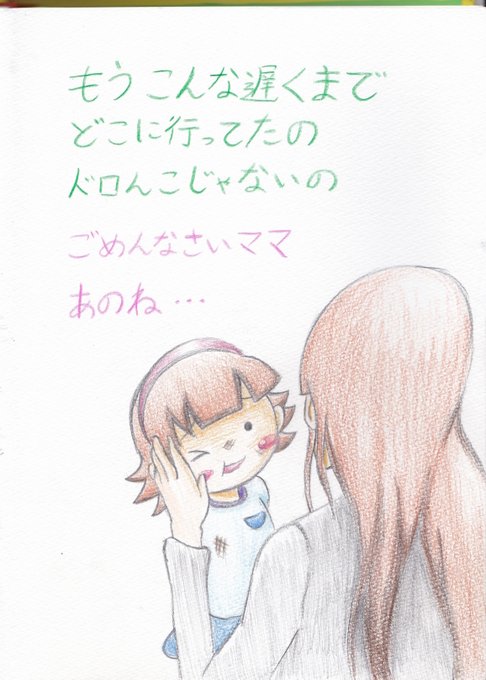 もう こんな遅くまで
どこに行ってたの
ドロんこじゃないの
ごめんなさいママ
あのね…